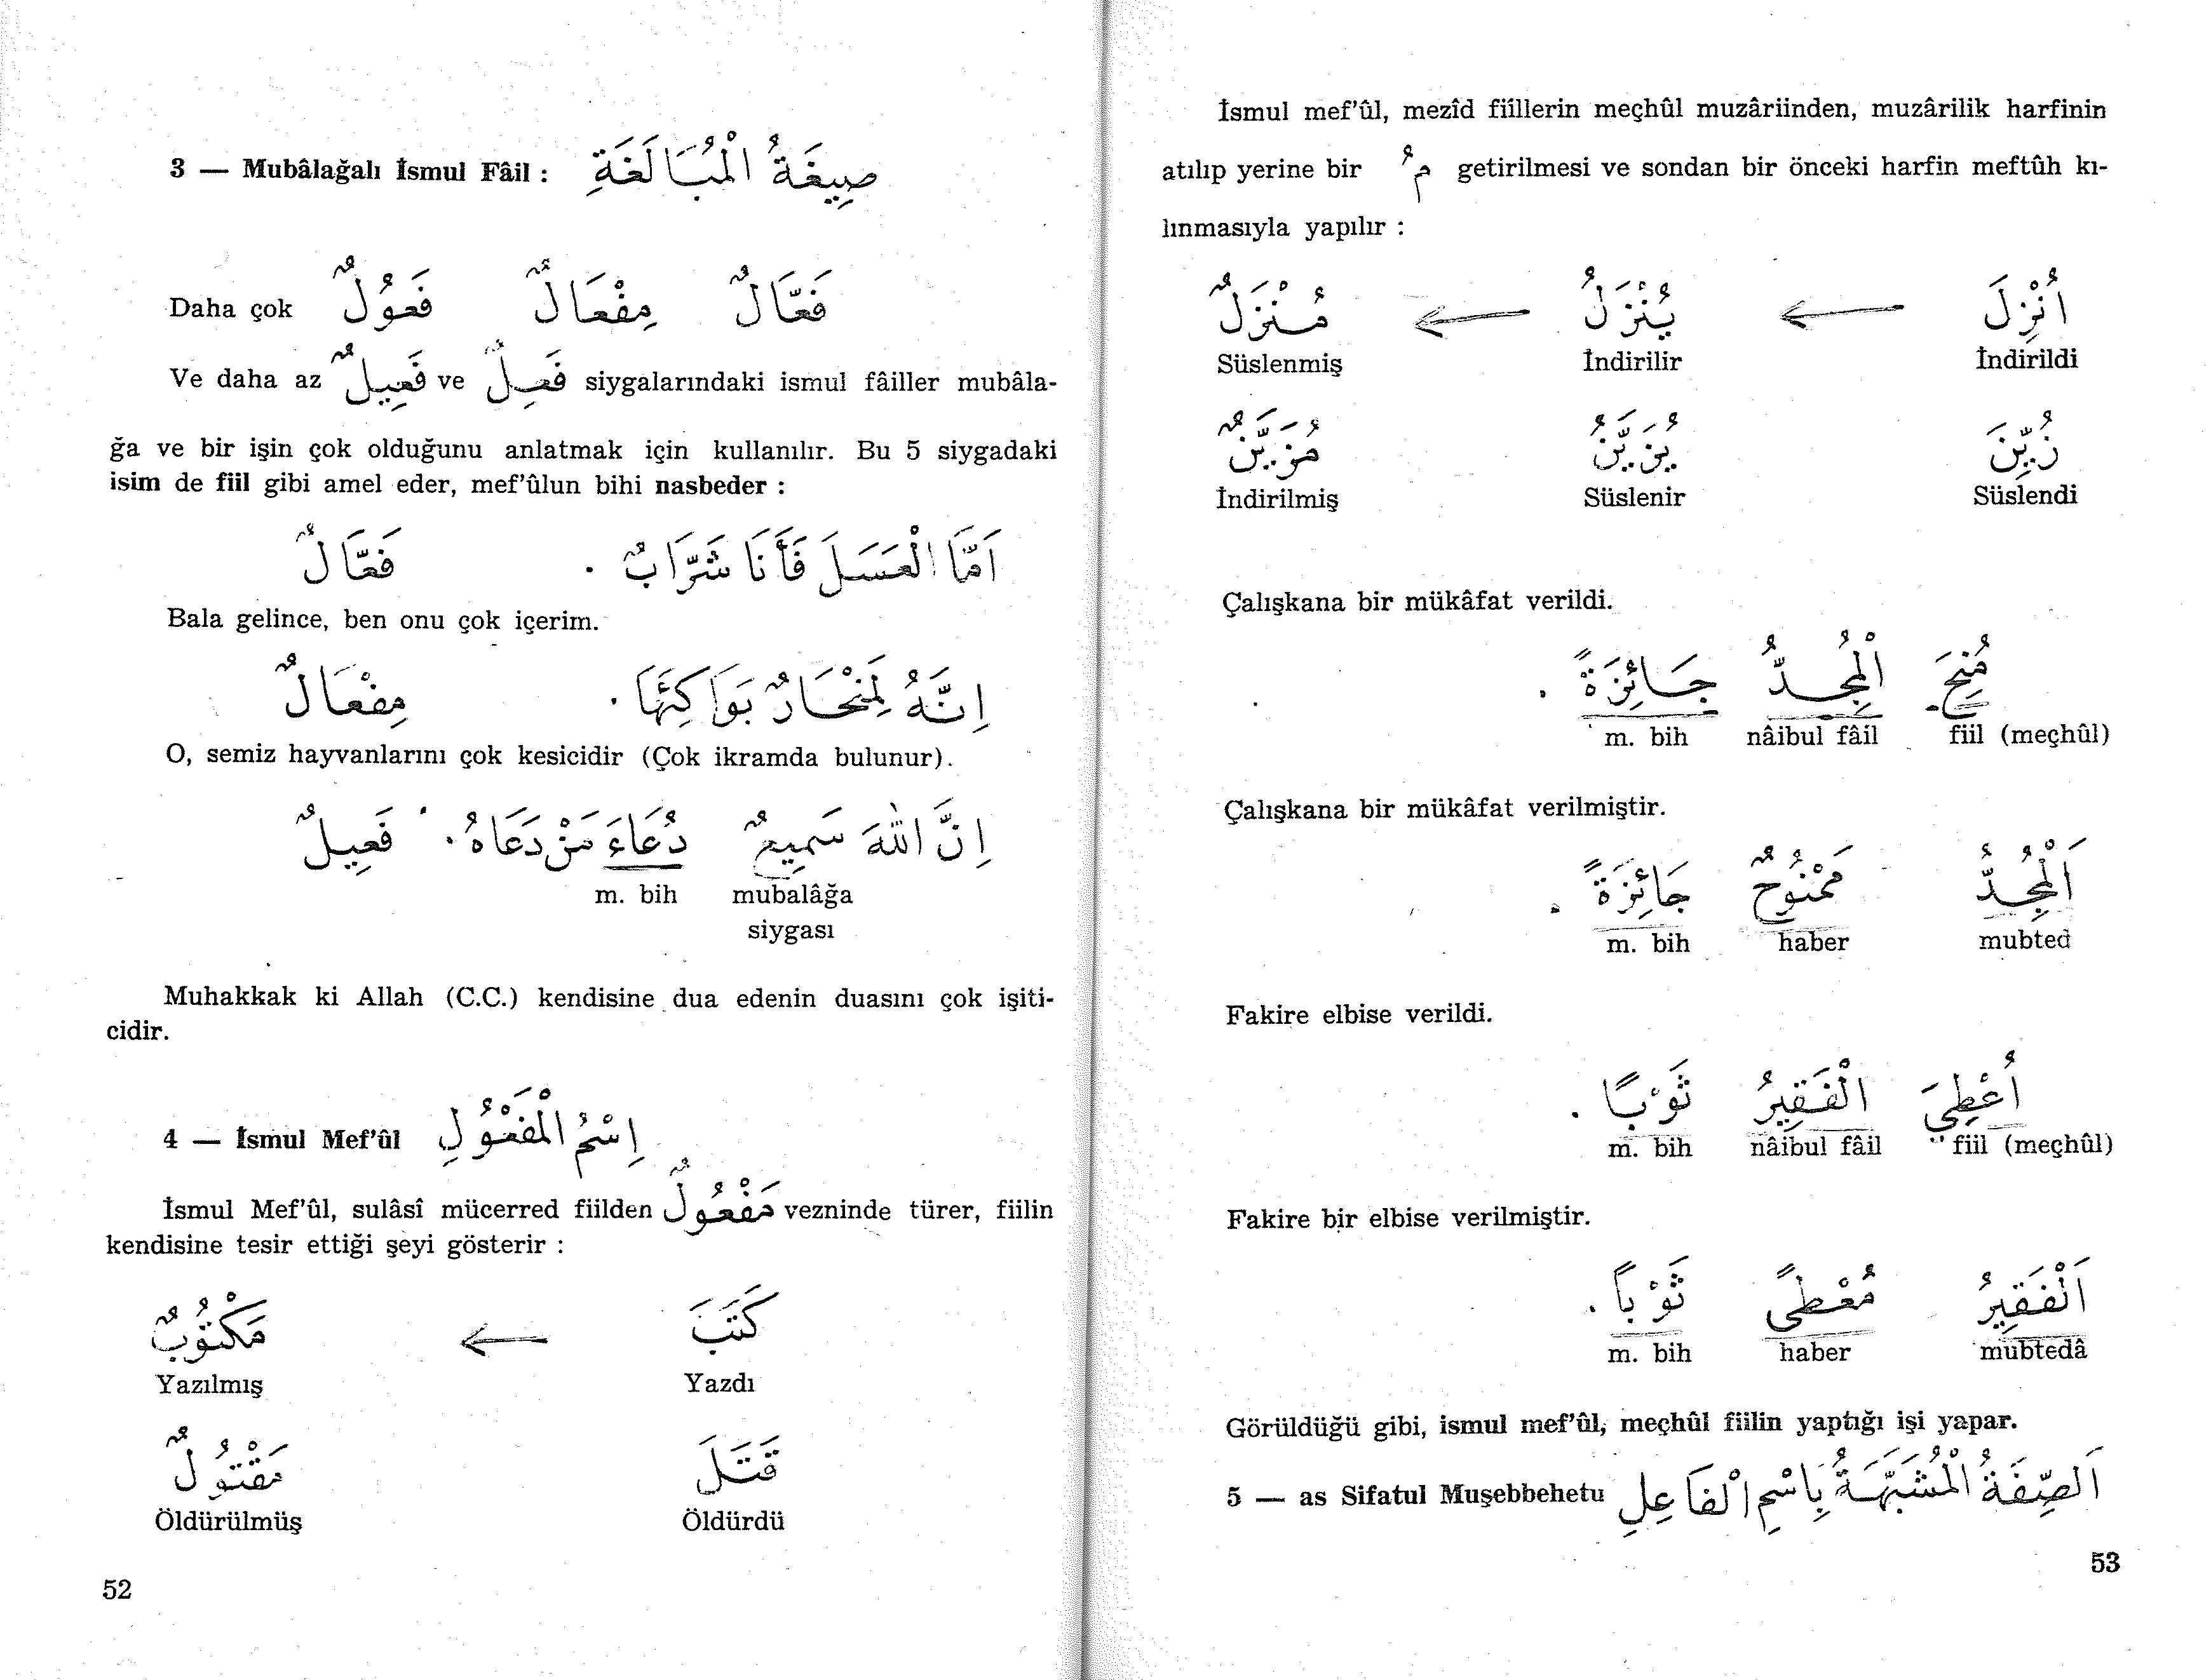 3 — Mubâlağalı İsmul Fâil : صِيغَةُ الْمُبَالَغَةِ
Daha çok فَعُولٌ مِفْعَالٌ فَعَّالٌ
Ve daha az فَعِيلٌ ve فَعِلٌ siygalarındaki ismul fâiller mubâla-
ğa ve bir işin çok olduğunu anlatmak için kullanılır. Bu 5 siygadaki
isim de fiil gibi amel eder, mef'ûlun bihi nasbeder :
اَمَّا الْعَسَلَ فَأَنَا شَرَّابٌ . فَعَّالٌ
Bala gelince, ben onu çok içerim.
اِنَّهُ لَمِنْحَارٌ بَوَاكِئَهَا . مِفْعَالٌ
O, semiz hayvanlarını çok kesicidir (Çok ikramda bulunur).
اِنَّ اللّٰهَ سَمِيعٌ دُعَاءَ مَنْ دَعَاهُ . فَعِيلٌ
m. bih mubalâğa
siygası
Muhakkak ki Allah (C.C.) kendisine dua edenin duasını çok işiti-
cidir.
4 — İsmul Mef'ûl اِسْمُ الْمَفْعُولِ
İsmul Mef'ûl, sulâsî mücerred fiilden مَفْعُولٌ vezninde türer, fiilin
kendisine tesir ettiği şeyi gösterir :
كَتَبَ ← مَكْتُوبٌ
Yazılmış Yazdı
قَتَلَ مَقْتُولٌ
Öldürülmüş Öldürdü
52
İsmul mef'ûl, mezîd fiillerin meçhûl muzâriinden, muzârilik harfinin
atılıp yerine bir مُ getirilmesi ve sondan bir önceki harfin meftûh kı-
lınmasıyla yapılır :
اُنْزِلَ ← يُنْزَلُ ← مُنْزَلٌ
Süslenmiş İndirilir İndirildi
زُيِّنَ يُزَيَّنُ مُزَيَّنٌ
İndirilmiş Süslenir Süslendi
Çalışkana bir mükâfat verildi.
مُنِحَ الْمُجِدُّ جَائِزَةً .
m. bih nâibul fâil fiil (meçhûl)
Çalışkana bir mükâfat verilmiştir.
اَلْمُجِدُّ مَمْنُوحٌ جَائِزَةً .
m. bih haber mubted
Fakire elbise verildi.
أُعْطِيَ الْفَقِيرُ ثَوْبًا .
m. bih nâibul fâil fiil (meçhûl)
Fakire bir elbise verilmiştir.
اَلْفَقِيرُ مُعْطًى ثَوْبًا .
m. bih haber mubtedâ
Görüldüğü gibi, ismul mef'ûl, meçhûl fiilin yaptığı işi yapar.
5 — as Sifatul Muşebbehetu اَلصِّفَةُ الْمُشَبَّهَةُ بِاسْمِ الْفَاعِلِ
53